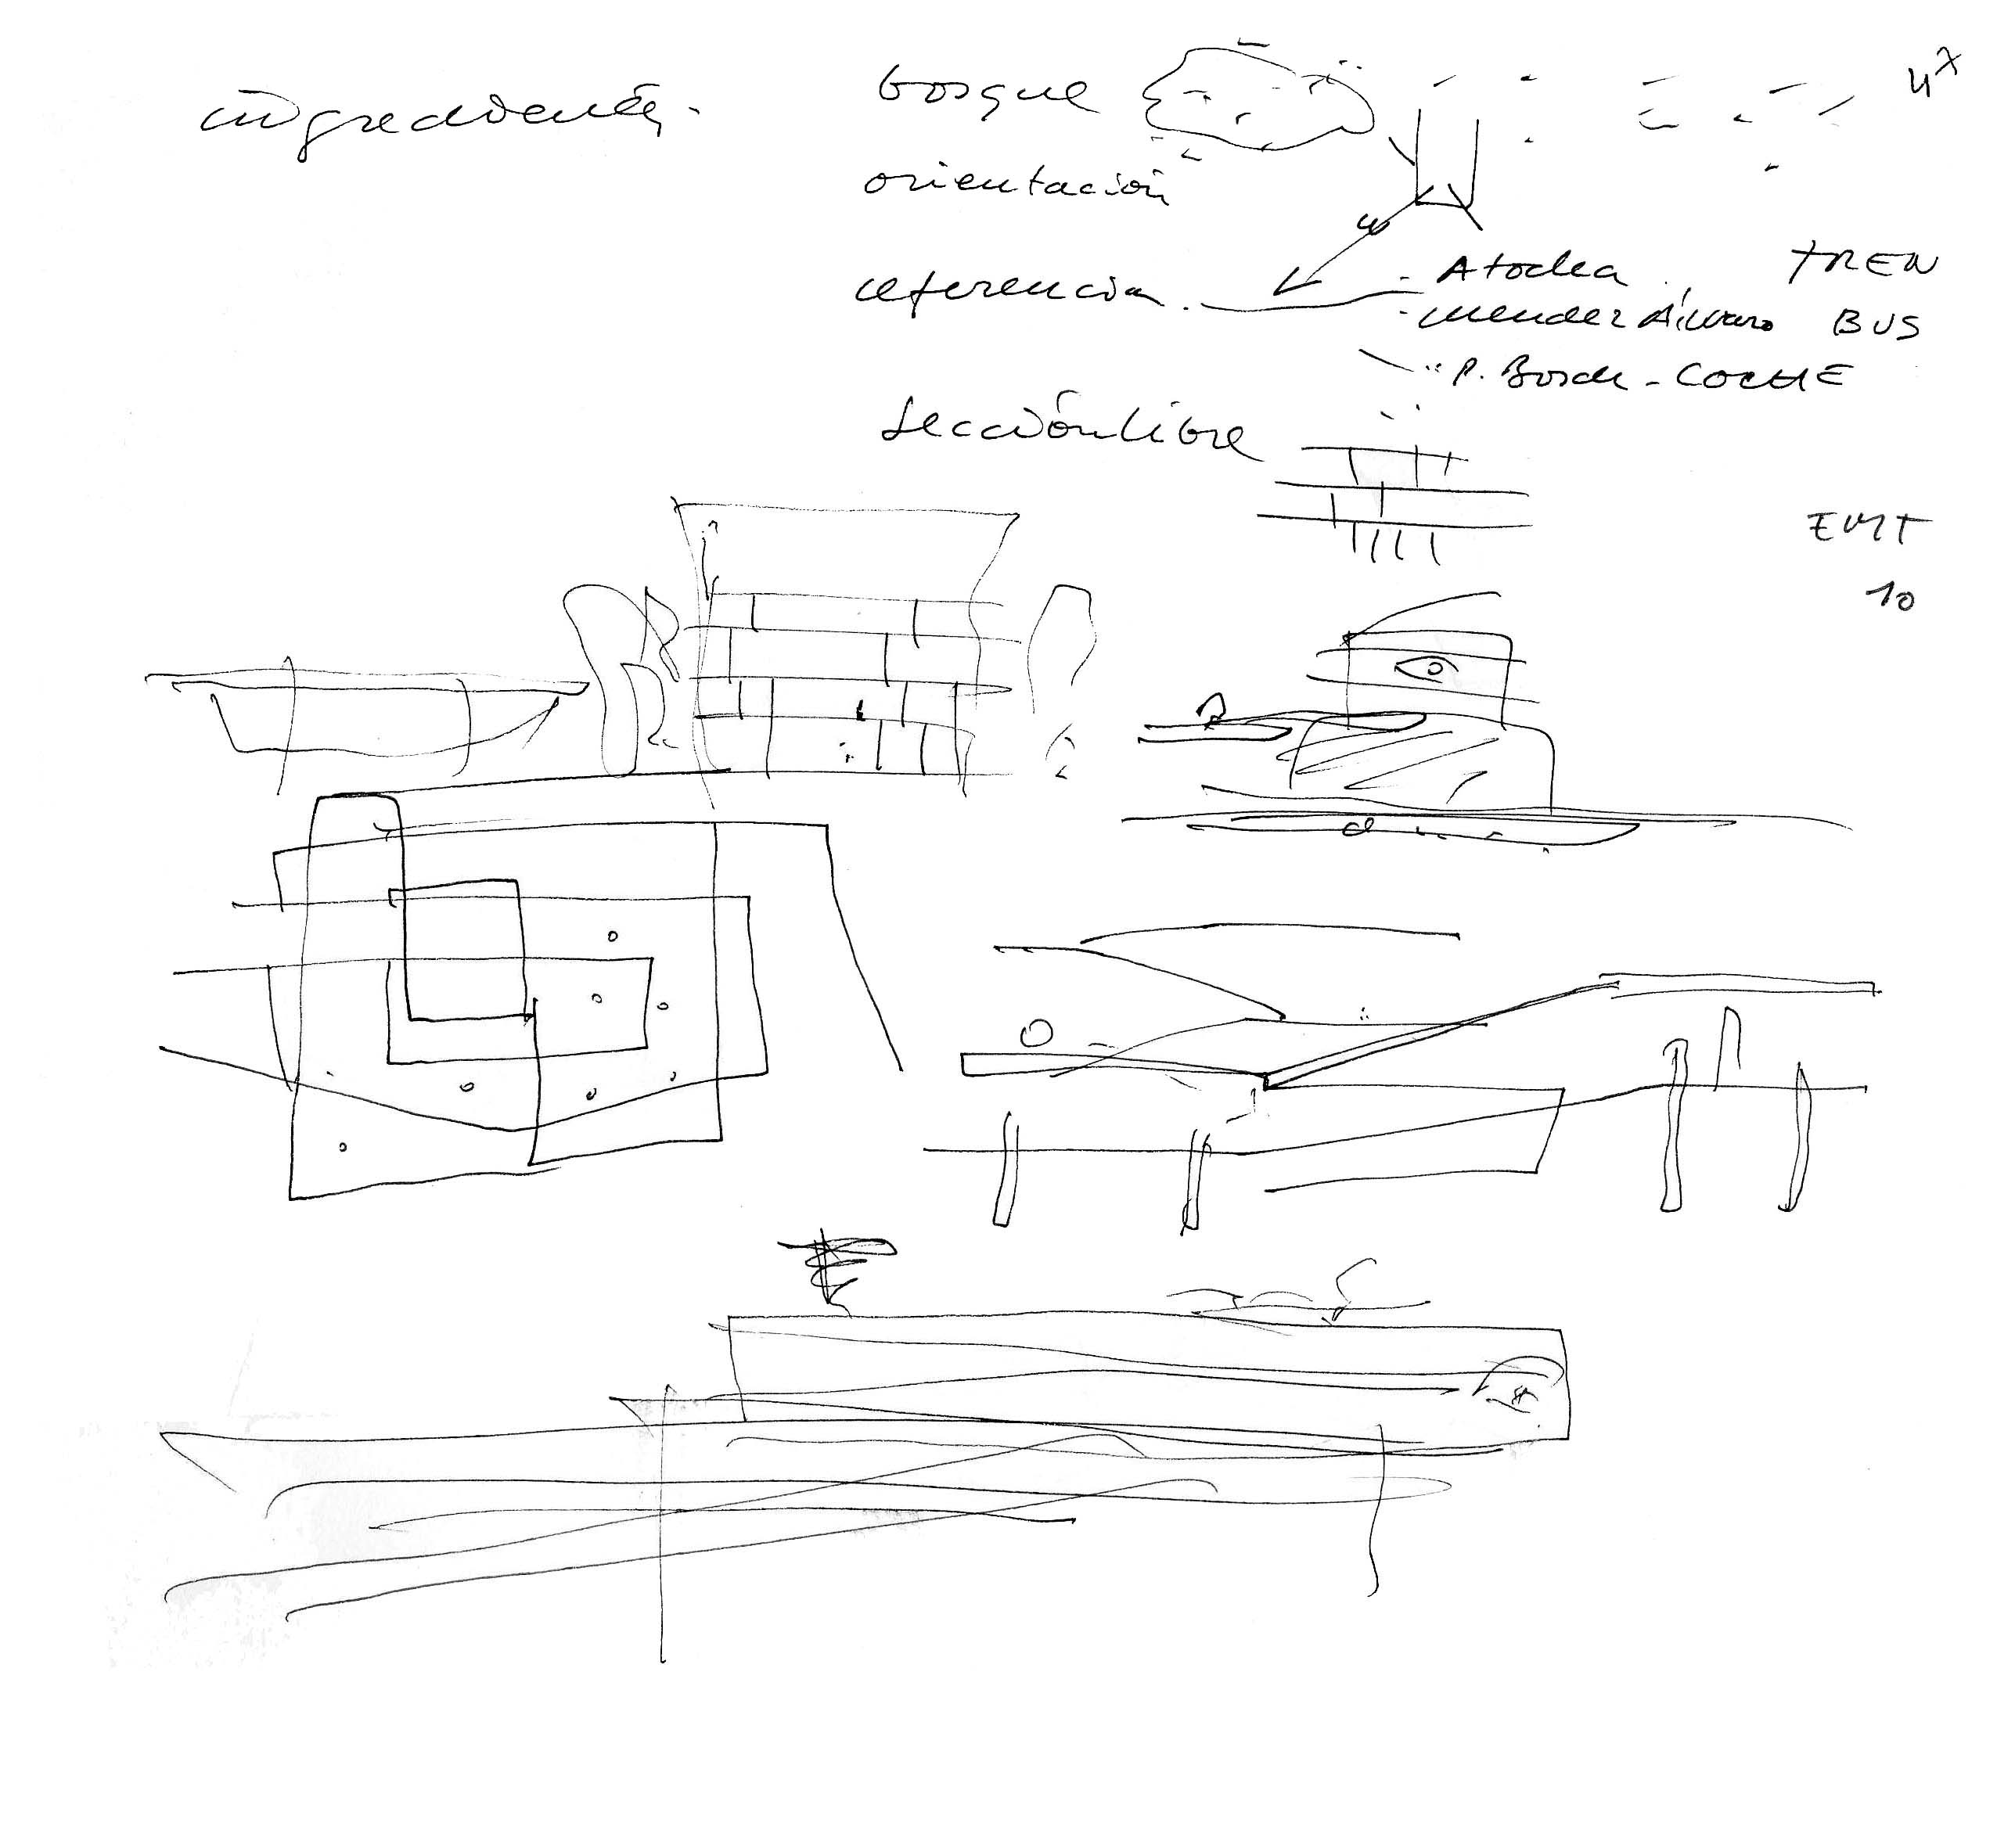 ingredientes.
bosque
orientación
referencia.
- Atocha TREN
- Mendez Álvaro BUS
P. Borde - COCHE
sección libre
EMT
10